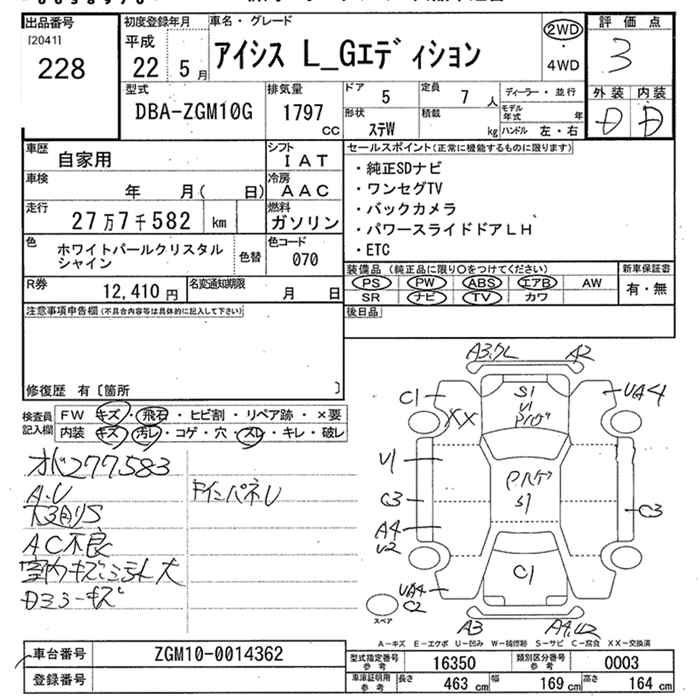 出品番号
I20411
228
初度登録年月
平成
22 5月
車名・グレード
アイシス L_Gエディション
2WD
・
4WD
評価点
3
外装 内装
D D
型式
DBA-ZGM10G
排気量
1797
CC
ドア 5
定員 7人
ディーラー・並行
形状 ステW
積載 kg
モデル年式 年
ハンドル 左・右
車歴
自家用
シフト
IAT
車検
年 月( 日)
冷房
AAC
走行
27万7千582 km
燃料
ガソリン
色
ホワイトパールクリスタル
シャイン
色替
色コード
070
R券
12,410 円
名変通知期限
月 日
セールスポイント(正常に機能するものに限ります)
・純正SDナビ
・ワンセグTV
・バックカメラ
・パワースライドドアLH
・ETC
装備品 (純正品に限り○をつけてください)
PS PW ABS エアB AW
SR ナビ TV カワ
新車保証書
有・無
後日品
注意事項申告欄(不具合内容等は具体的に記入して下さい)
修復歴 有〔箇所 〕
検査員
記入欄
FW キズ・飛石・ヒビ割・リペア跡・×要
内装 キズ・汚レ・コゲ・穴・スレ・キレ・破レ
277583
A.U
AC不良
A2
C1
XX
S1
U1
UA4
U1
C3
A4
U2
S1
C3
C1
UA4
C2
スペア
A3
A-キズ E-エクボ U-凹み W-補修跡 S-サビ C-腐食 XX-交換済
車台番号
ZGM10-0014362
登録番号
型式指定番号
参考
16350
類別区分番号
参考
0003
車庫証明用
参考
長さ 463 cm
幅 169 cm
高さ 164 cm